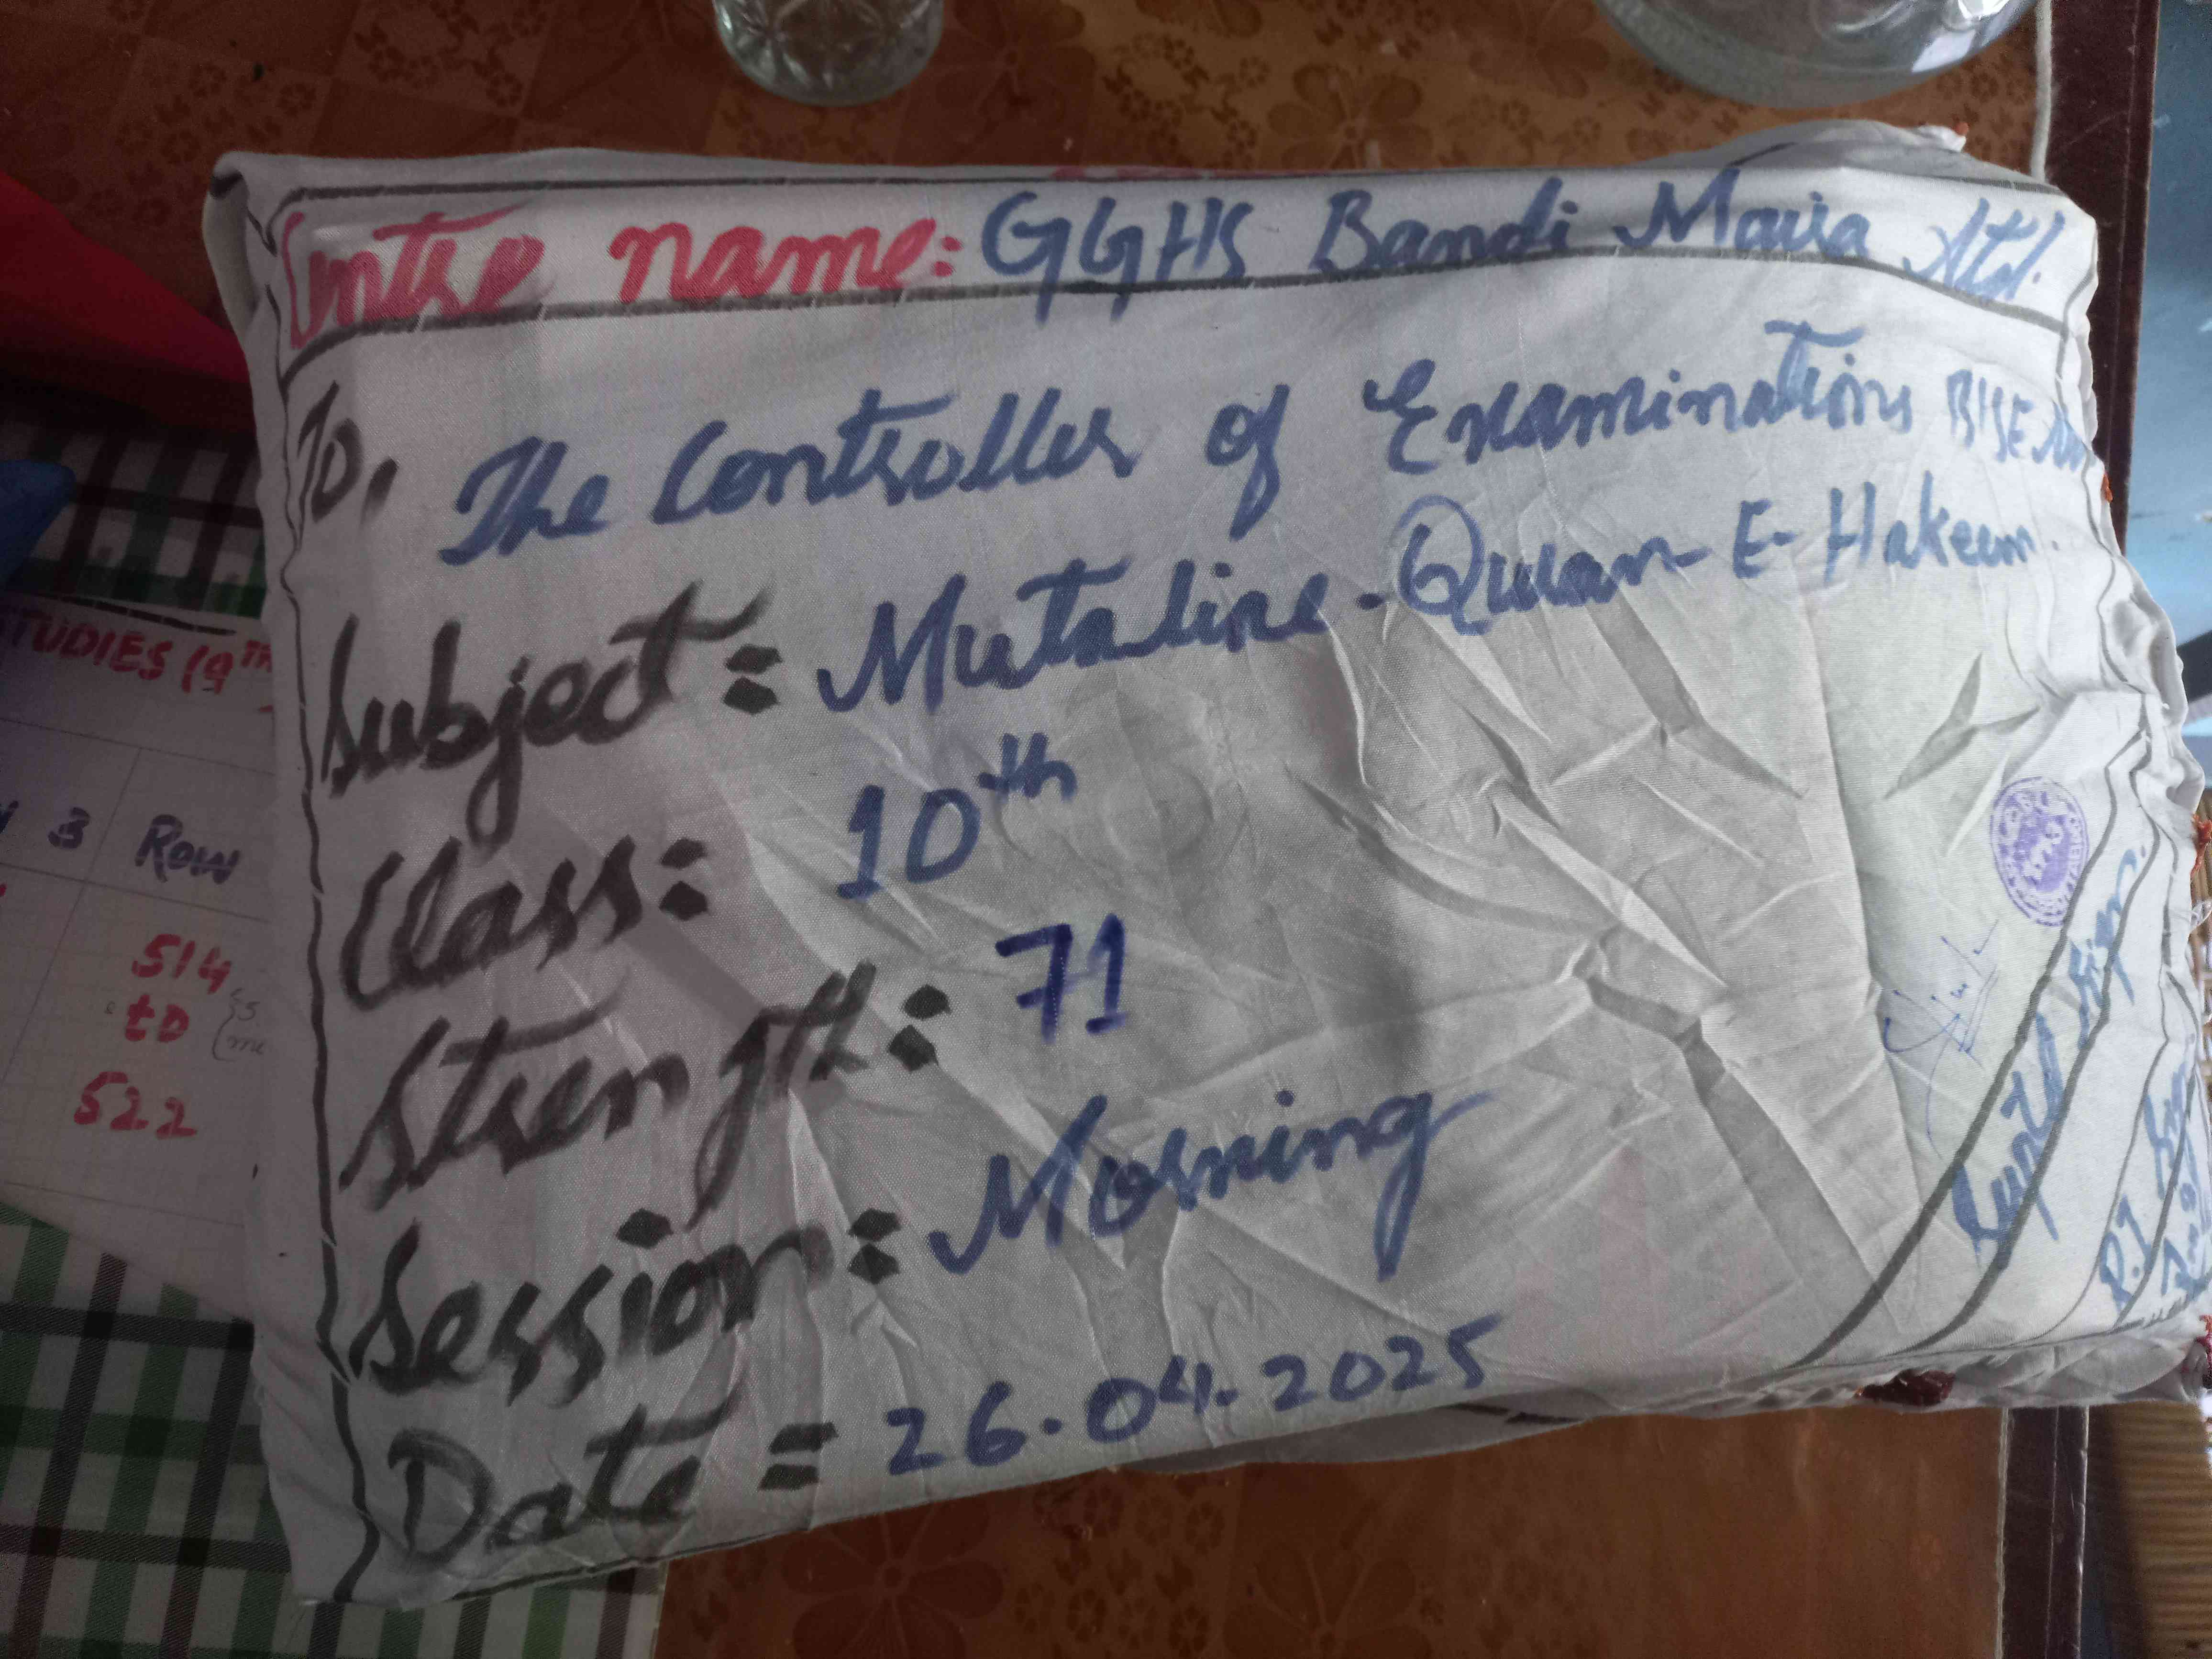 Centre name: GGHS Bandi Maira Atd.
To,
The Controller of Examinations BISE
Subject: Mutaline-Quran-E-Hakeem.
Class: 10th
Strength: 71
Session: Morning
Date = 26.04.2025
Suptd Sign.
STUDIES (9TH
3 Row
514
to
522